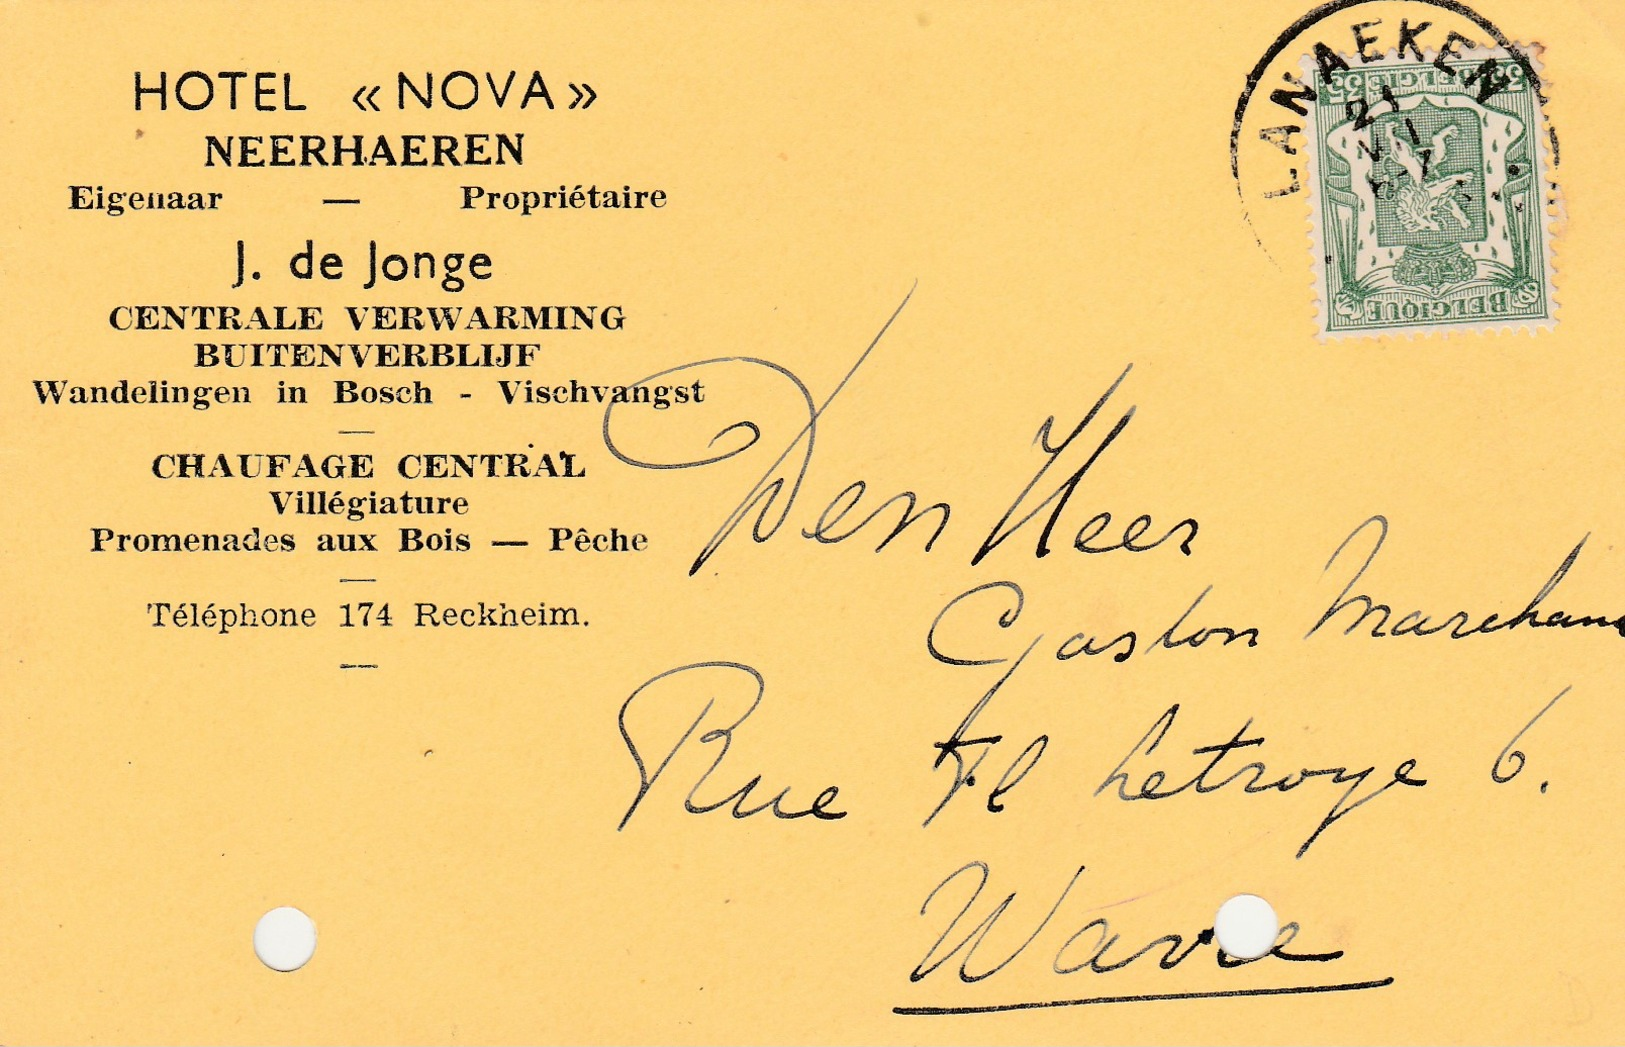 HOTEL « NOVA »
NEERHAEREN
Eigenaar — Propriétaire
J. de Jonge
CENTRALE VERWARMING
BUITENVERBLIJF
Wandelingen in Bosch - Vischvangst
—
CHAUFAGE CENTRAL
Villégiature
Promenades aux Bois — Pêche
—
Téléphone 174 Reckheim.
—
LANAEKEN
21
VII
35 BELGIE 35
BELGIQUE
Den Heer
Gaston Marchand
Rue Fl Letroye 6.
Wavre